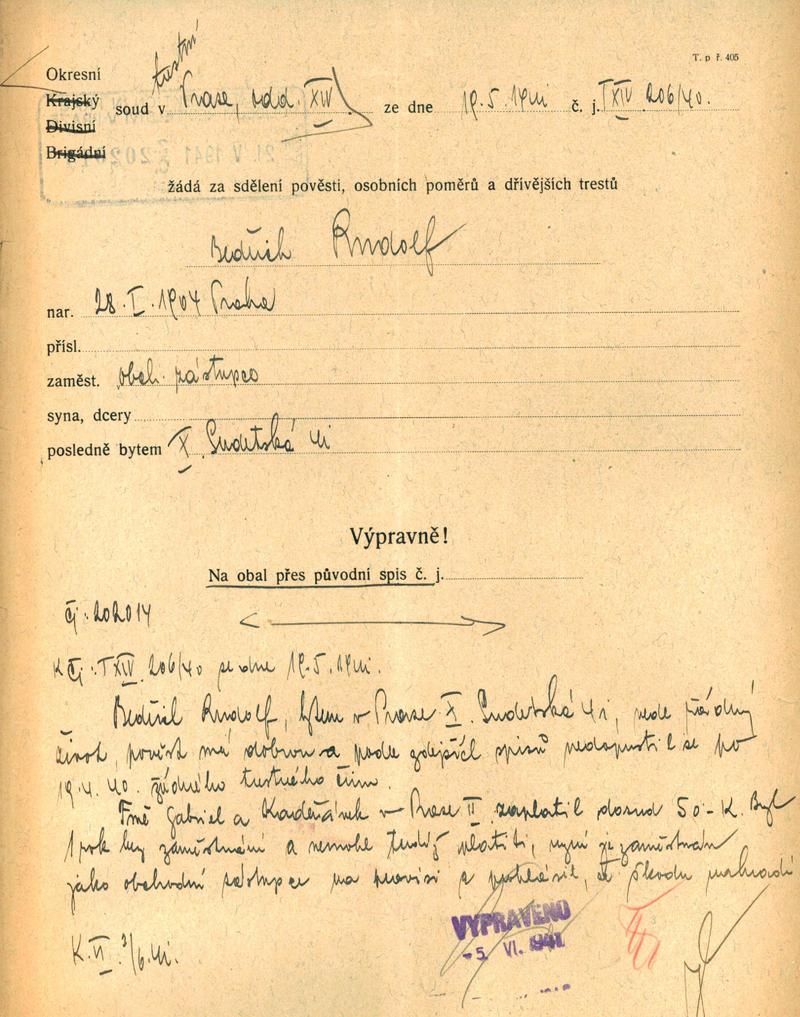 T. p ř. 405
Okresní trestní
Krajský soud v Praze, odd. XIV ze dne 19.5.1941 č. j. T XIV 206/40.
Divisní
Brigádní
21. V 1941
žádá za sdělení pověsti, osobních poměrů a dřívějších trestů
Bedřich Rudolf
nar. 28.I.1904 Praha
přísl.
zaměst. obch. zástupce
syna, dcery
posledně bytem X. Sudetská 41
Výpravně!
Na obal přes původní spis č. j.
Čj. 202014
K Čj. T XIV 206/40 ze dne 19.5.1941.
Bedřich Rudolf, bytem v Praze X. Sudetská 41, vede řádný
život, pověst má dobrou a podle zdejších spisů nedopustil se po
19.4.40. žádného trestného činu.
Firmě Gabriel a v Praze II zaplatil dosud 50.-K. Byl
1 rok bez zaměstnání a nemohl tudíž platiti, nyní je zaměstnán
jako obchodní zástupce na provisi a prohlásil, že škodu nahradí
K. II. 3/6.41.
VYPRAVENO
-5. VI. 1941